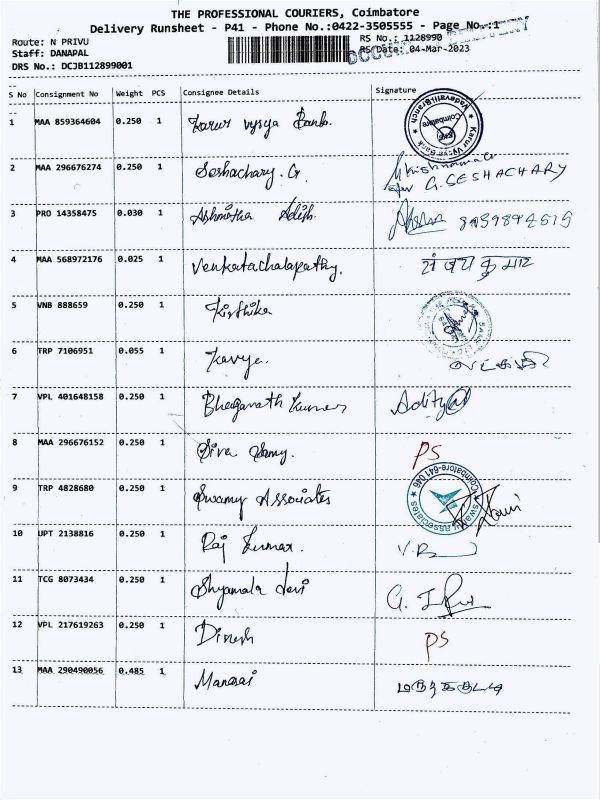 THE PROFESSIONAL COURIERS, Coimbatore
Delivery Runsheet - P41 - Phone No.:0422-3505555 - Page No.:1
Route: N PRIVU
RS No.: 1128990
Staff: DANAPAL
RS Date: 04-Mar-2023
DRS No.: DCJB112899001
S No Consignment No Weight PCS Consignee Details Signature
1 MAA 859364604 0.250 1 Karur vysya Bank.
Karur Vysya Bank Coimbatore Vadavalli Branch
2 MAA 296676274 0.250 1 Seshachary. G.
for G. SESHACHARY
3 PRO 14358475 0.030 1 Ashmitha Adish.
4 MAA 568972176 0.025 1 Venkatachalapathy. संजय कुमार
5 VNB 888659 0.250 1 Kirthika
6 TRP 7106951 0.055 1 Kavya.
7 VPL 401648158 0.250 1 Bhaganath Kumar
8 MAA 296676152 0.250 1 Siva Samy. PS
9 TRP 4828680 0.250 1 Swamy Associates
swamy associates Coimbatore-641 046
10 UPT 2138816 0.250 1 Raj Kumar.
11 TCG 8073434 0.250 1 Shyamala devi
12 VPL 217619263 0.250 1 Dinesh PS
13 MAA 290490056 0.485 1 Manasai